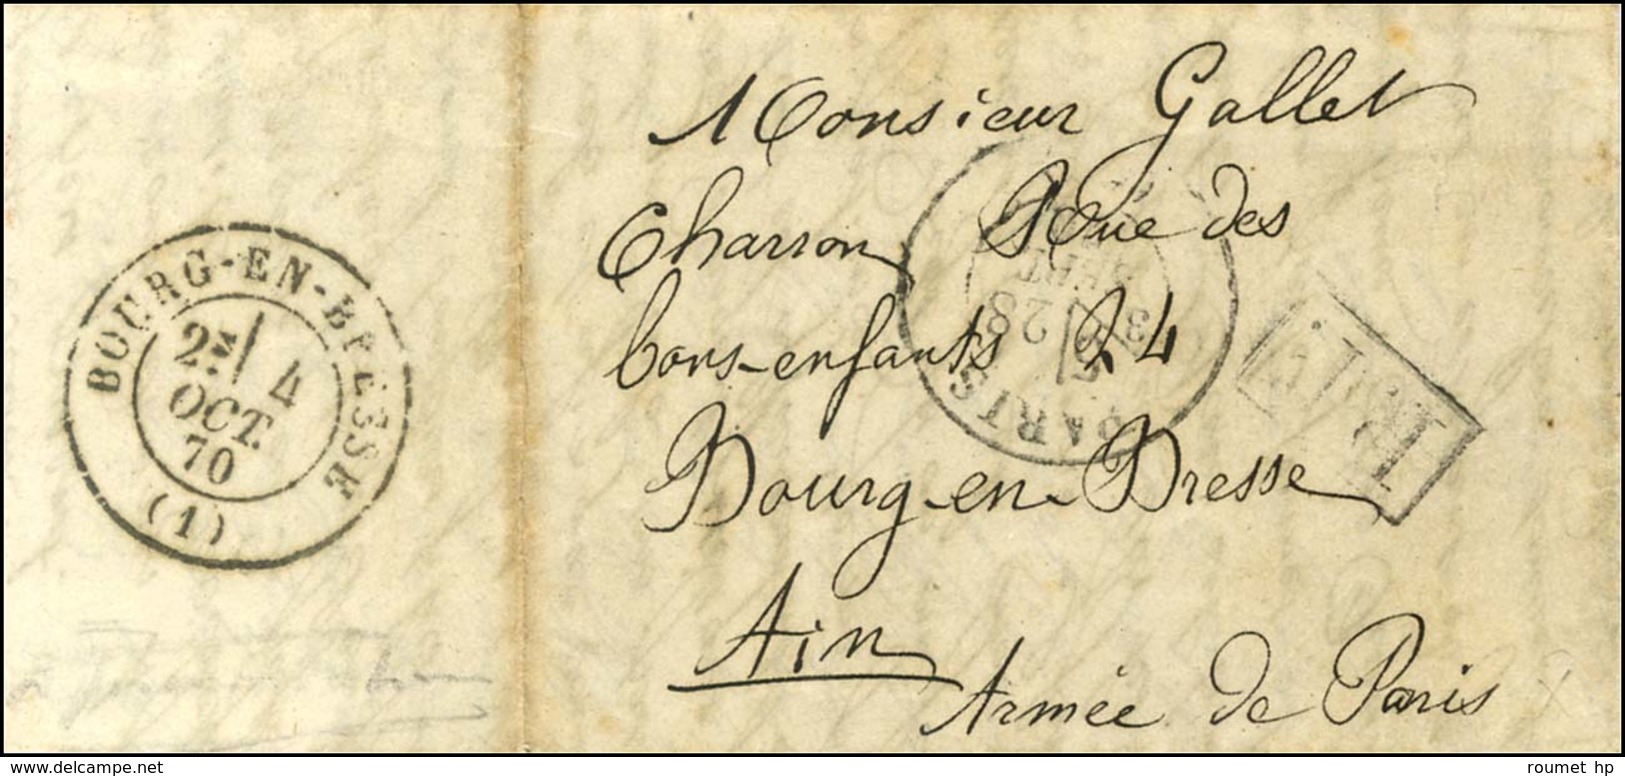 Monsieur Gallet
Charron Rue des
bons-enfants 24
Bourg-en-Bresse
Ain
Armée de Paris
BOURG-EN-BRESSE
2E 4
OCT.
70
(1)
PARIS
SEPT
28
P.P.
roumet hp
delcampe.net